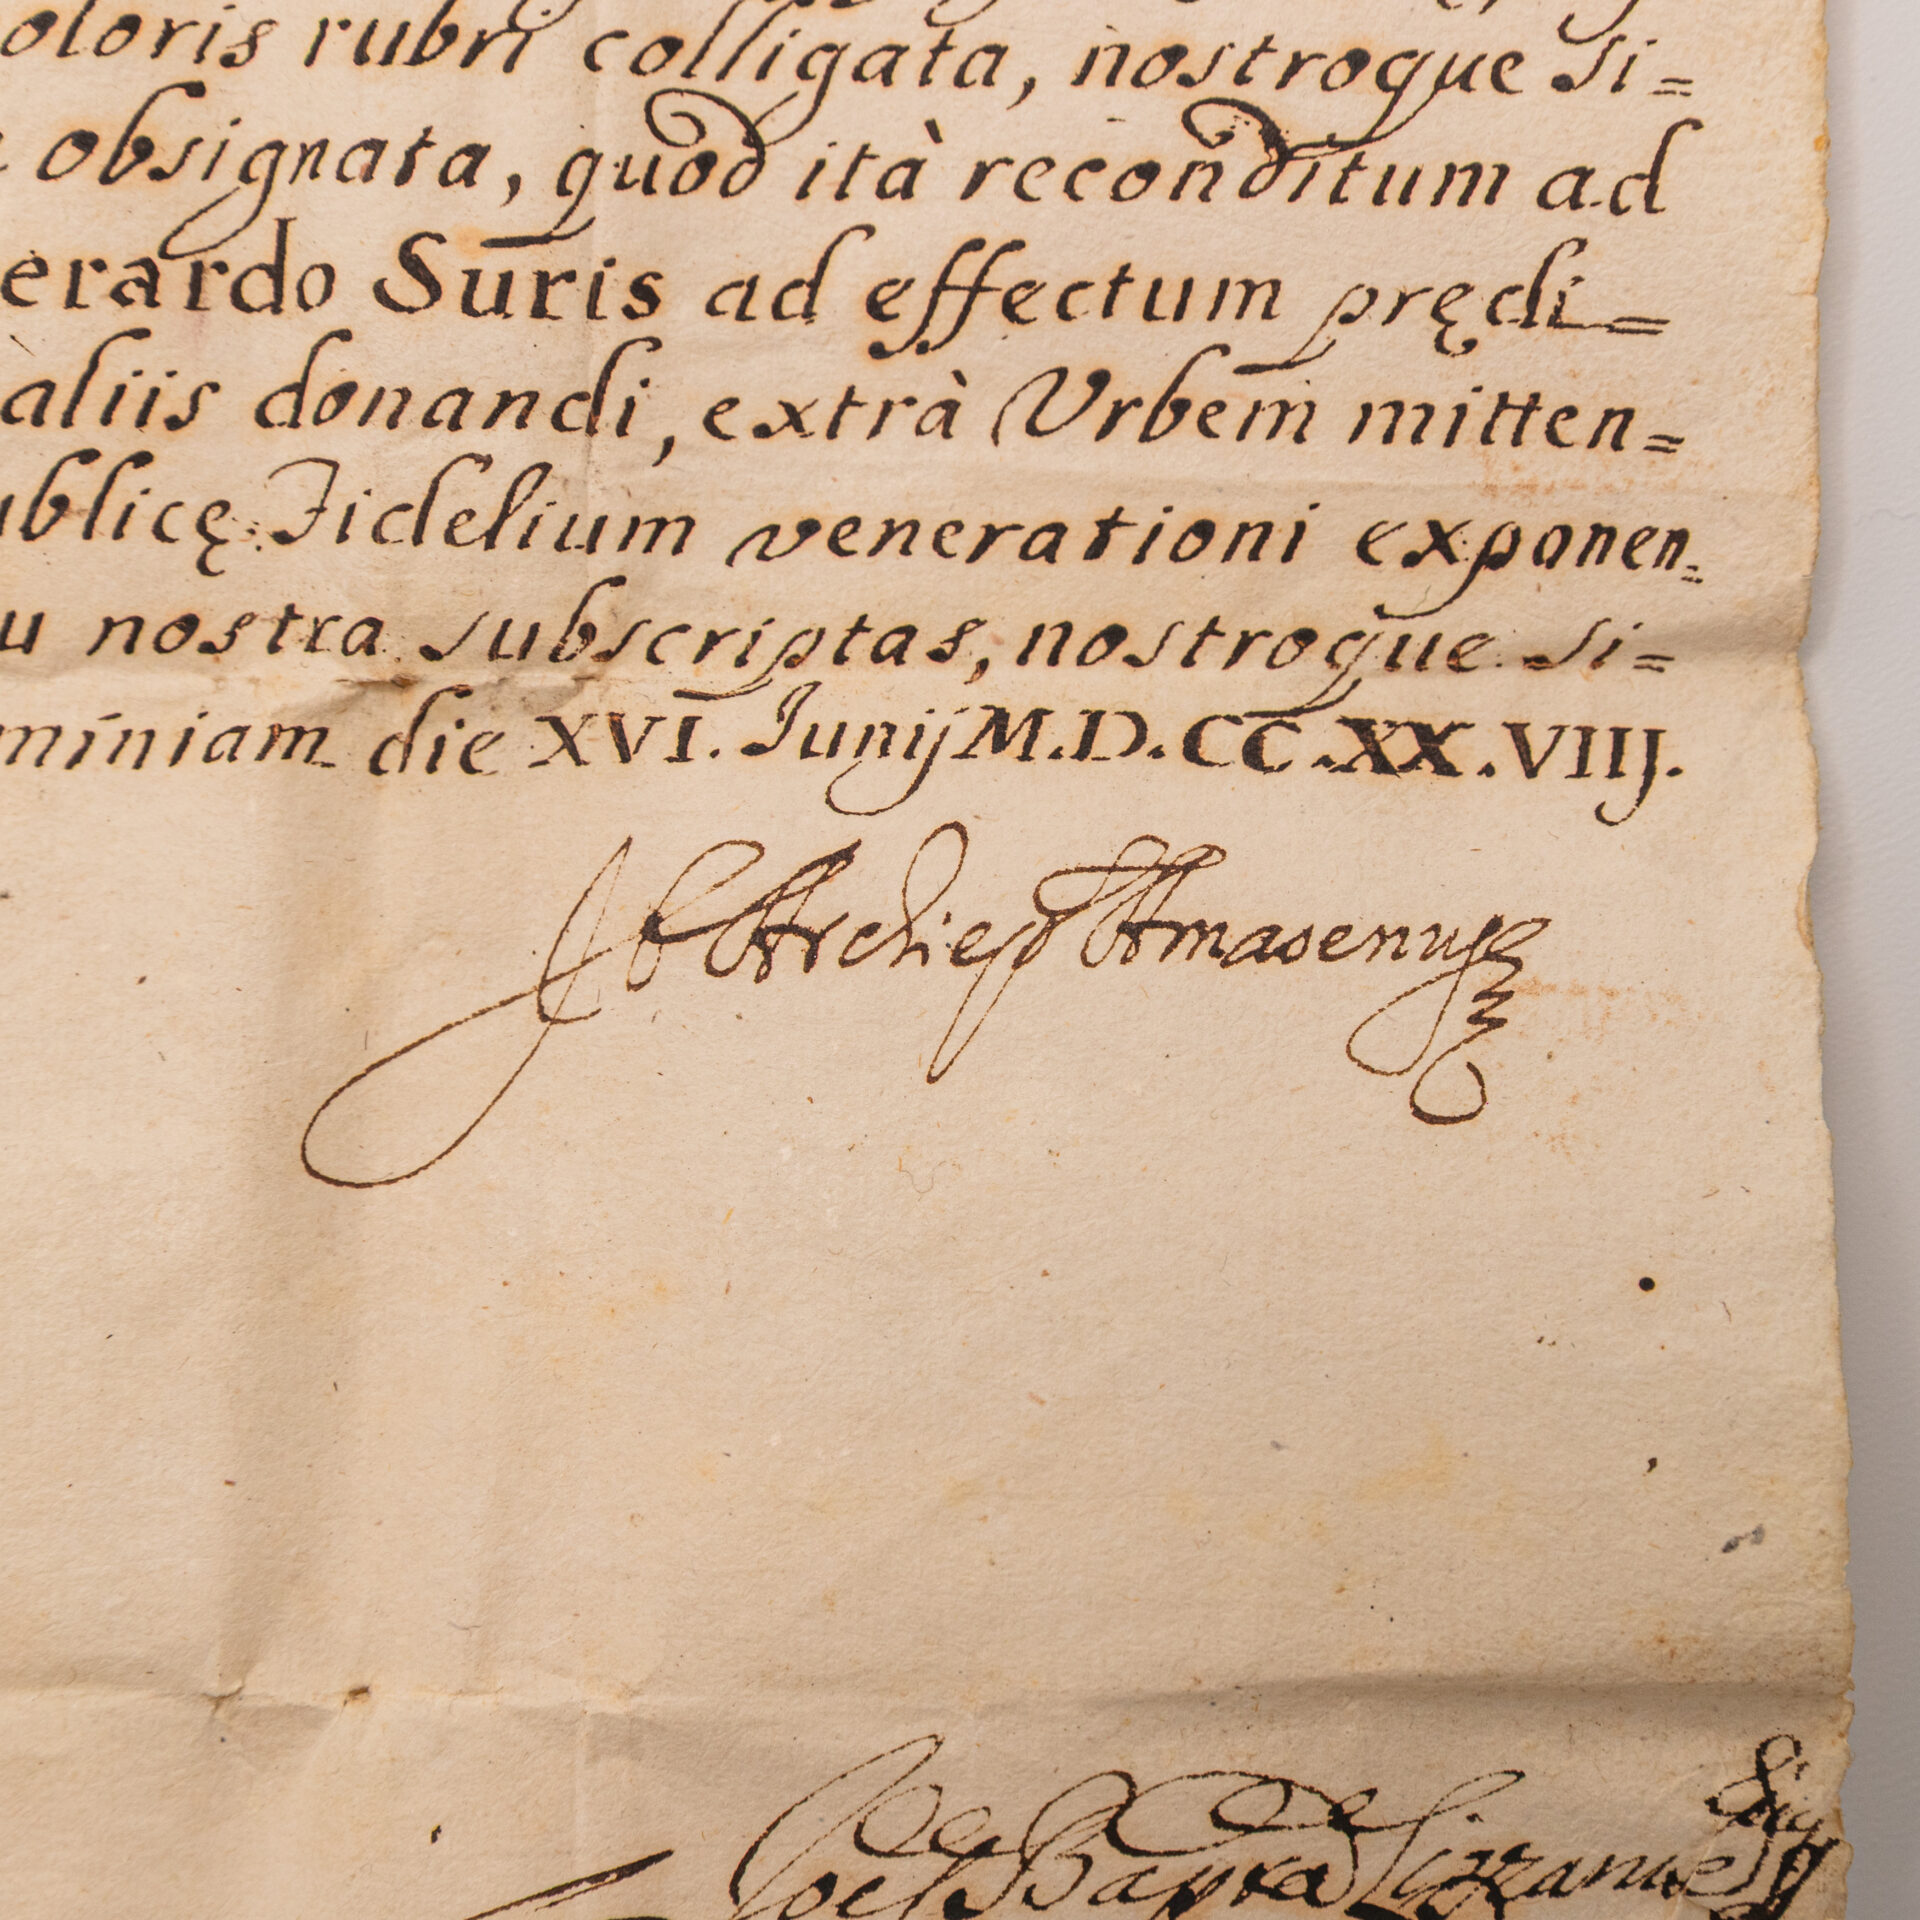 oloris rubri colligata, nostroque Si=
obsignata, quod ità reconditum ad
erardo Suris ad effectum prędi=
aliis donandi, extrà Urbem mitten=
ublicę Fidelium venerationi exponen=
u nostra subscriptas, nostroque Si=
miniam die XVI. Junij M.D.CC.XX.VIIJ.
Archiep Amasenus
Bapta